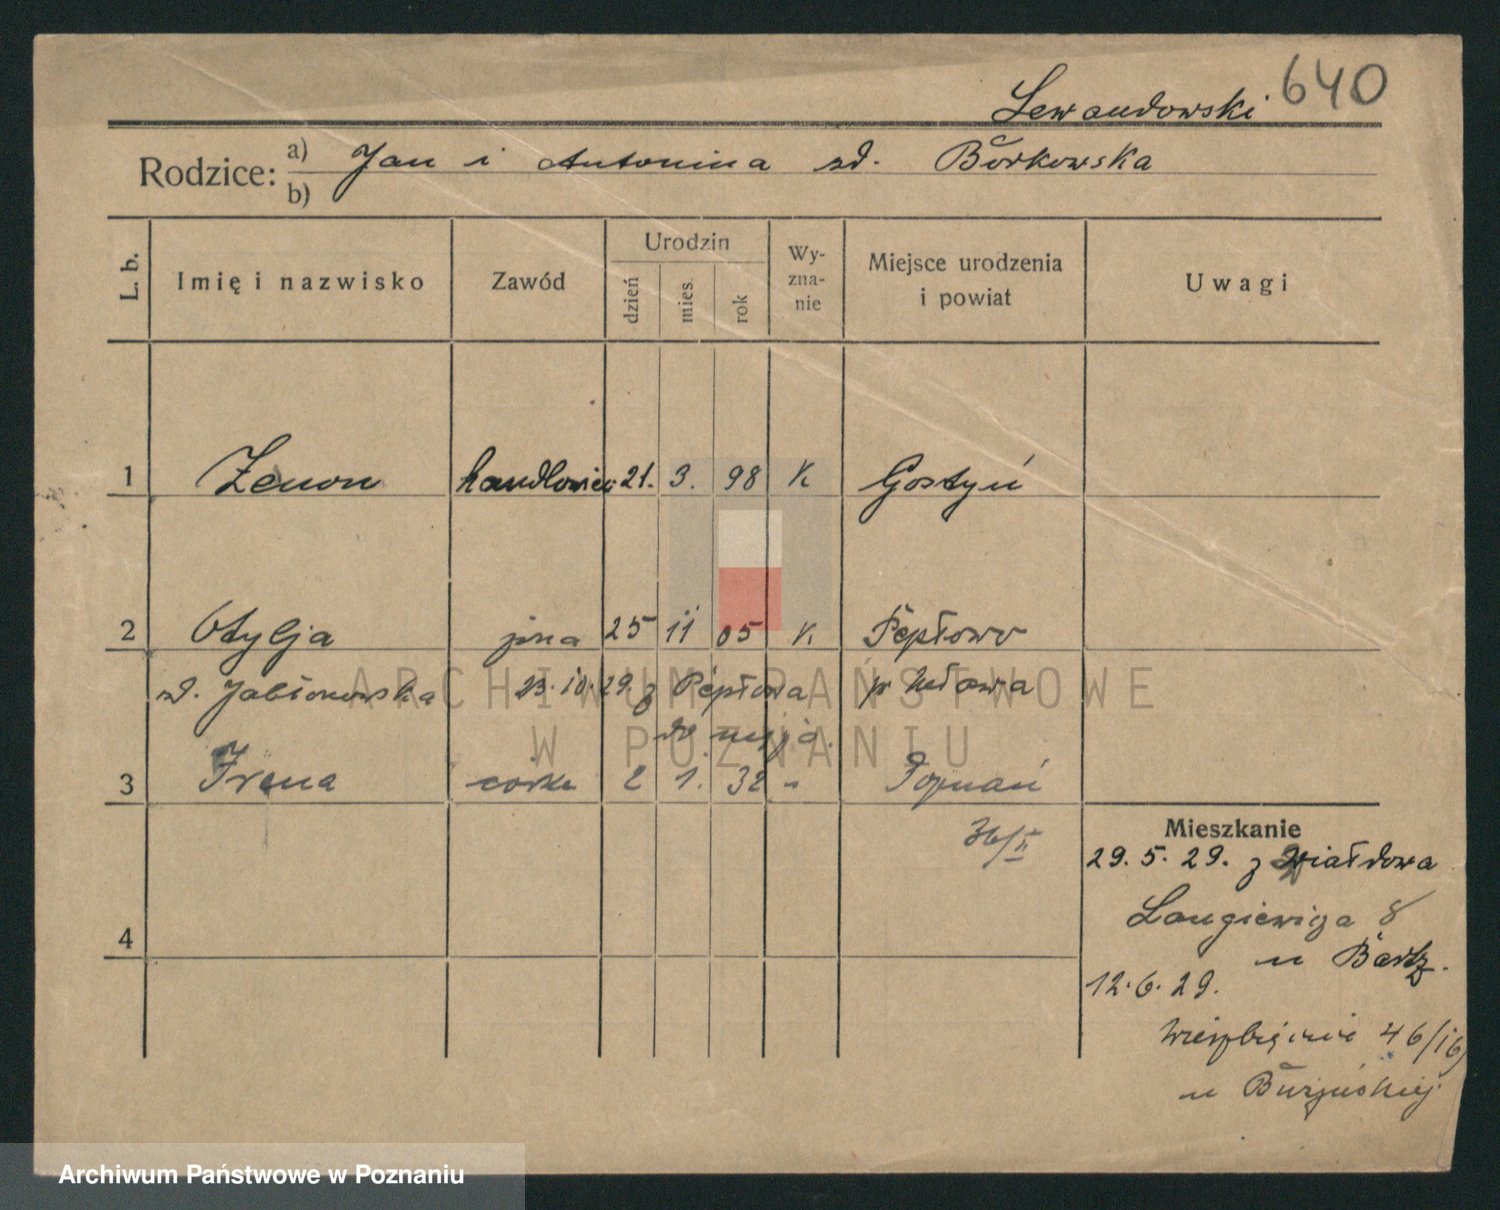 640
Lewandowski
Rodzice: a) Jan i Antonina zd. Borkowska
b)
L. b.
Imię i nazwisko
Zawód
Urodzin
dzień
mies.
rok
Wy-
zna-
nie
Miejsce urodzenia
i powiat
Uwagi
1 Zenon handlowiec 21. 3. 98 K Gostyń
2 Otylja żona 25 11 05 K Pepłowo
zd. Jabłonowska 23.10.29. z Pepłowa p. Mława
do męża.
3 Irena córka 2 1. 32 " Poznań
36/II
4
Mieszkanie
29.5.29. z Działdowa
Langiewicza 8
u Bartz.
12.6.29.
Wierzbięcice 46/16
u Burzyńskiej.
ARCHIWUM PAŃSTWOWE
W POZNANIU
Archiwum Państwowe w Poznaniu